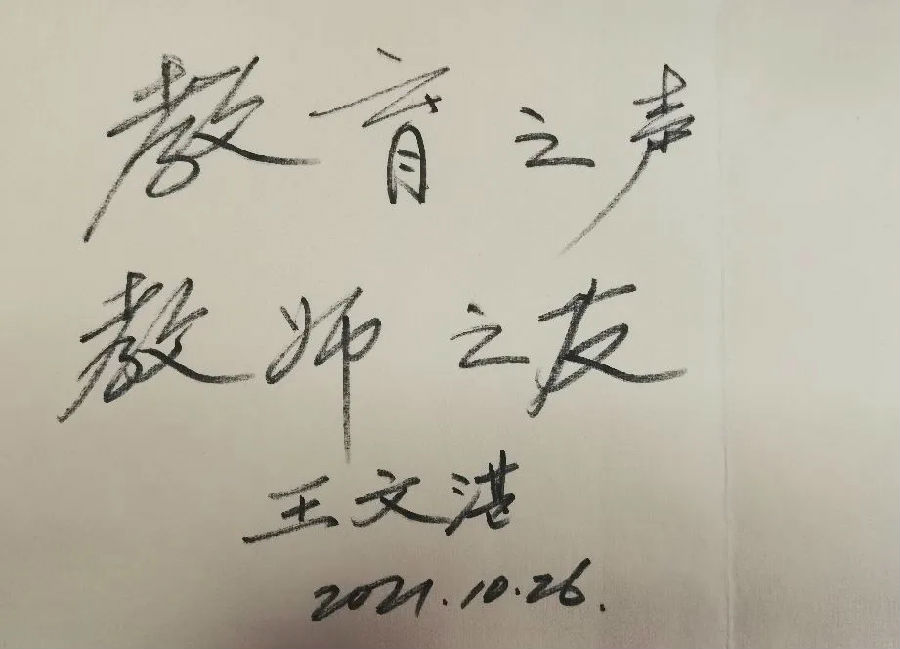 教育之声
教师之友
王文湛
2021.10.26.